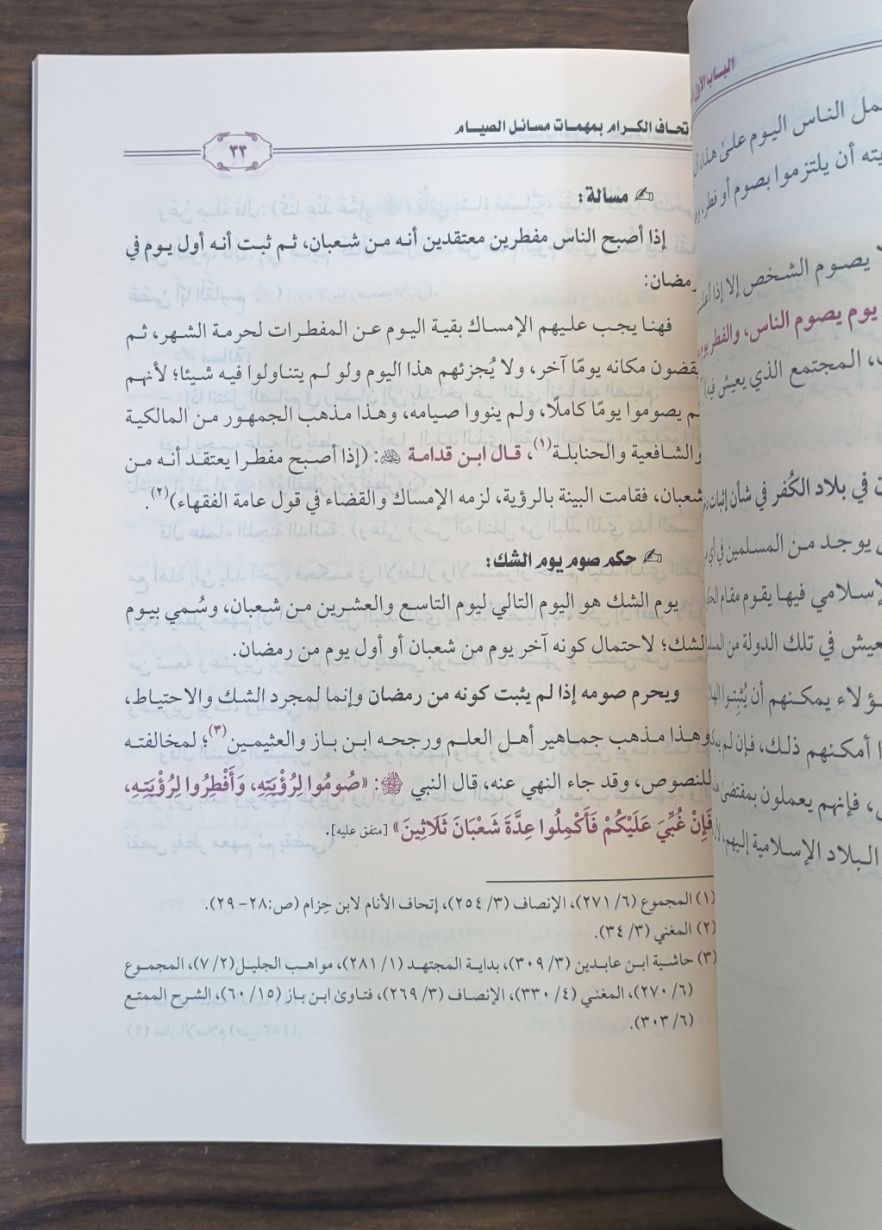 الباب الأول
مل الناس اليوم على هذا
يته أن يلتزموا بصوم أو فطر
يصوم الشخص إلا إذا
يوم يصوم الناس، والفطر يوم
المجتمع الذي يعيش فيه
ن في بلاد الكُفر في شأن إثبات
يوجد من المسلمين في أي
إسلامي فيها يقوم مقام
عيش في تلك الدولة من
ؤلاء يمكنهم أن يُثبِتوا
ا أمكنهم ذلك، فإن لم
، فإنهم يعملون بمقتضى
البلاد الإسلامية إليهم،
تحاف الكرام بمهمات مسائل الصيام
٣٣
مسألة:
إذا أصبح الناس مفطرين معتقدين أنه من شعبان، ثم ثبت أنه أول يوم في
رمضان:
فهنا يجب عليهم الإمساك بقية اليوم عن المفطرات لحرمة الشهر، ثم
يقضون مكانه يومًا آخر، ولا يُجزئهم هذا اليوم ولو لم يتناولوا فيه شيئا؛ لأنهم
لم يصوموا يومًا كاملًا، ولم ينووا صيامه، وهذا مذهب الجمهور من المالكية
والشافعية والحنابلة(١)، قال ابن قدامة ﵀: (إذا أصبح مفطرا يعتقد أنه من
شعبان، فقامت البينة بالرؤية، لزمه الإمساك والقضاء في قول عامة الفقهاء)(٢).
حكم صوم يوم الشك:
يوم الشك هو اليوم التالي ليوم التاسع والعشرين من شعبان، وسُمي بيوم
الشك؛ لاحتمال كونه آخر يوم من شعبان أو أول يوم من رمضان.
ويحرم صومه إذا لم يثبت كونه من رمضان وإنما لمجرد الشك والاحتياط،
وهذا مذهب جماهير أهل العلم ورجحه ابن باز والعثيمين(٣)؛ لمخالفته
للنصوص، وقد جاء النهي عنه، قال النبي ﷺ: «صُومُوا لِرُؤْيَتِهِ، وَأَفْطِرُوا لِرُؤْيَتِهِ،
فَإِنْ غُبِّيَ عَلَيْكُمْ فَأَكْمِلُوا عِدَّةَ شَعْبَانَ ثَلَاثِينَ» [متفق عليه].
(١) المجموع (٦/ ٢٧١)، الإنصاف (٣/ ٢٥٤)، إتحاف الأنام لابن حِزام (ص:٢٨-٢٩).
(٢) المغني (٣/ ٣٤).
(٣) حاشية ابن عابدين (٣/ ٣٠٩)، بداية المجتهد (١/ ٢٨١)، مواهب الجليل(٢/ ٧)، المجموع
(٦/ ٢٧٠)، المغني (٤/ ٣٣٠)، الإنصاف (٣/ ٢٦٩)، فتاوىٰ ابن باز (١٥/ ٦٠)، الشرح الممتع
(٦/ ٣٠٣).